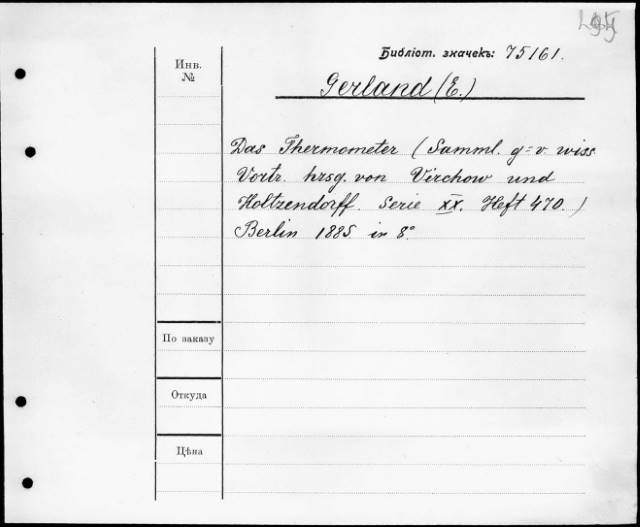 Библіот. значекъ: 75161.
Инв. №
Gerland (E.)
Das Thermometer (Samml. g=v. wiss.
Vortr. hrsg. von Virchow und
Holtzendorff. Serie XX. Heft 470.)
Berlin 1885 in 8°.
По заказу
Откуда
Цѣна